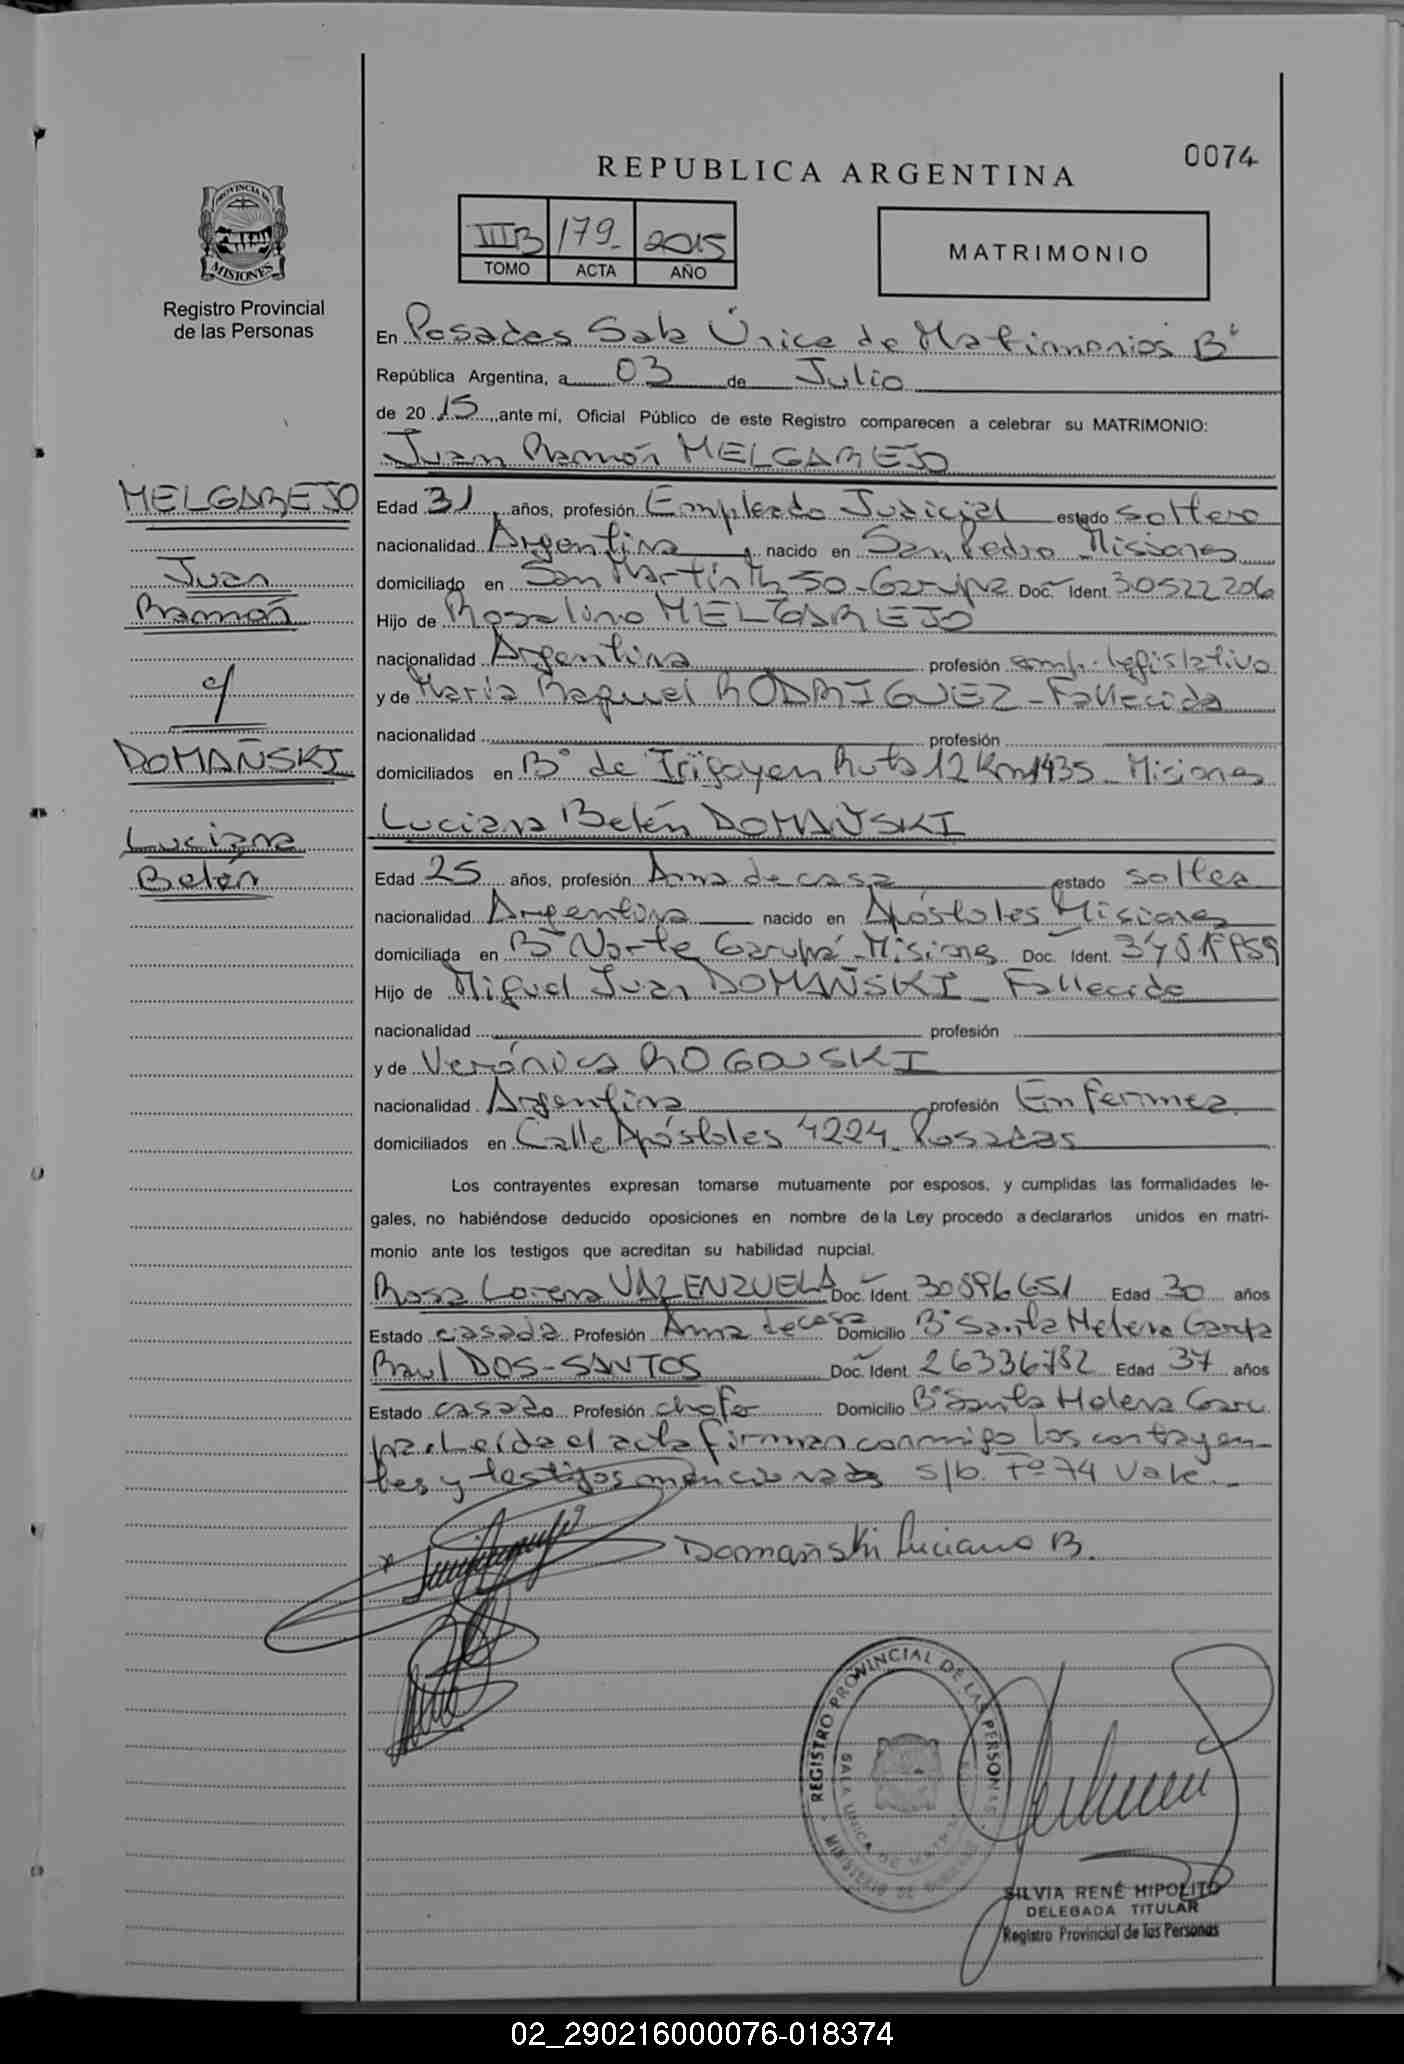 0074
REPUBLICA ARGENTINA
PROVINCIA DE
MISIONES
Registro Provincial
de las Personas
IIIB 179- 2015
TOMO ACTA AÑO
MATRIMONIO
En Posadas Sala Única de Matrimonios B
República Argentina, a 03 de Julio
de 20 15 ante mí, Oficial Público de este Registro comparecen a celebrar su MATRIMONIO:
Juan Ramón MELGAREJO
MELGAREJO
Juan
Ramón
c/
DOMAÑSKI
Luciana
Belén
Edad 31 años, profesión Empleado Judicial estado soltero
nacionalidad Argentina nacido en San Pedro Misiones
domiciliado en San Martín 50-Garupa Doc. Ident. 30522206
Hijo de Rosalino MELGAREJO
nacionalidad Argentina profesión emp. legislativo
y de María Raquel RODRIGUEZ - Fallecida
nacionalidad profesión
domiciliados en B° de Irigoyen Ruta 12 Km 1435 - Misiones
Luciana Belén DOMAÑSKI
Edad 25 años, profesión Ama de casa estado soltera
nacionalidad Argentina nacido en Apóstoles Misiones
domiciliada en B° Norte Garupá - Misiones Doc. Ident.
Hijo de Miguel Juan DOMAÑSKI - Fallecido
nacionalidad profesión
y de Verónica ROGOUSKI
nacionalidad Argentina profesión Enfermera
domiciliados en Calle Apóstoles 4224 Posadas
Los contrayentes expresan tomarse mutuamente por esposos, y cumplidas las formalidades le-
gales, no habiéndose deducido oposiciones en nombre de la Ley procedo a declararlos unidos en matri-
monio ante los testigos que acreditan su habilidad nupcial.
Rosa Lorena VALENZUELA Doc. Ident. 30896651 Edad 30 años
Estado casada Profesión Ama de casa Domicilio B° Santa Helena Garupa
Raul DOS-SANTOS Doc. Ident. 26336782 Edad 37 años
Estado casado Profesión chofer Domicilio B° Santa Helena Garu
pa. Leída el acta firman conmigo los contrayen-
tes y testigos mencionados s/b. F° 74 Vale.-
Domañski Luciana B.
REGISTRO PROVINCIAL DE LAS PERSONAS
SALA UNICA DE
MINISTERIO DE
SILVIA RENÉ HIPOLITO
DELEGADA TITULAR
Registro Provincial de las Personas
02_290216000076-018374